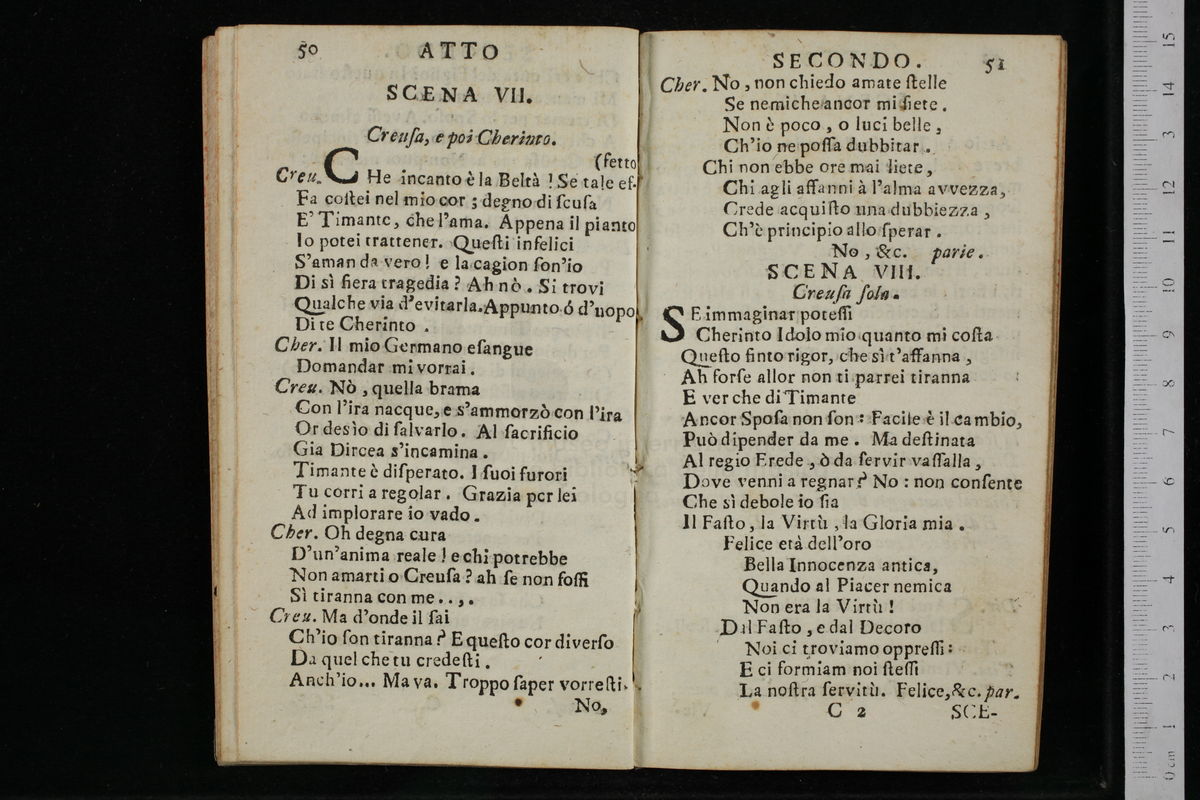 50 ATTO
SCENA VII.
Creuſa, e poi Cherinto.
(fetto
Creu. CHe incanto è la Beltà ! Se tale ef-
Fa coſtei nel mio cor ; degno di ſcuſa
E' Timante, che l'ama. Appena il pianto
Io potei trattener. Queſti infelici
S'aman da vero ! e la cagion ſon'io
Di sì fiera tragedia ? Ah nò . Si trovi
Qualche via d'evitarla. Appunto ó d'uopo
Di te Cherinto .
Cher. Il mio Germano eſangue
Domandar mi vorrai .
Creu. Nò , quella brama
Con l'ira nacque, e s'ammorzò con l'ira
Or desìo di ſalvarlo . Al ſacrificio
Gia Dircea s'incamina .
Timante è diſperato. I ſuoi furori
Tu corri a regolar . Grazia per lei
Ad implorare io vado .
Cher. Oh degna cura
D'un'anima reale ! e chi potrebbe
Non amarti o Creuſa ? ah ſe non foſſi
Sì tiranna con me . . , .
Creu. Ma d'onde il ſai
Ch'io ſon tiranna ? E queſto cor diverſo
Da quel che tu credeſti .
Anch'io... Ma va. Troppo ſaper vorreſti.
No,
SECONDO. 51
Cher. No , non chiedo amate ſtelle
Se nemiche ancor mi ſiete .
Non è poco , o luci belle ,
Ch'io ne poſſa dubbitar .
Chi non ebbe ore mai liete ,
Chi agli affanni à l'alma avvezza,
Crede acquiſto una dubbiezza ,
Ch'è principio allo ſperar .
No , &c. parte.
SCENA VIII.
Creuſa ſola.
SE immaginar poteſſi
Cherinto Idolo mio quanto mi coſta
Queſto finto rigor, che sì t'affanna ,
Ah forſe allor non ti parrei tiranna
E ver che di Timante
Ancor Spoſa non ſon : Facile è il cambio,
Può dipender da me . Ma deſtinata
Al regio Erede , ò da ſervir vaſſalla ,
Dove venni a regnar ? No : non conſente
Che sì debole io ſia
Il Faſto, la Virtù , la Gloria mia .
Felice età dell'oro
Bella Innocenza antica,
Quando al Piacer nemica
Non era la Virtù !
Dal Faſto , e dal Decoro
Noi ci troviamo oppreſſi :
E ci formiam noi ſteſſi
La noſtra ſervitù. Felice, &c. par.
C 2 SCE-
15
14
13
12
11
10
9
8
7
6
5
4
3
2
1
0 cm